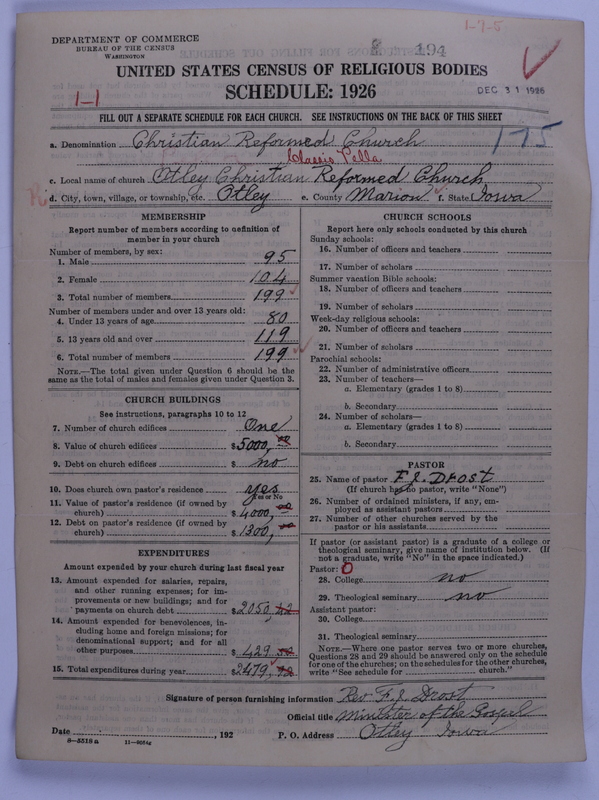 1-7-5
DEPARTMENT OF COMMERCE
BUREAU OF THE CENSUS
WASHINGTON
194
UNITED STATES CENSUS OF RELIGIOUS BODIES
SCHEDULE: 1926
DEC 31 1926
1-1
FILL OUT A SEPARATE SCHEDULE FOR EACH CHURCH. SEE INSTRUCTIONS ON THE BACK OF THIS SHEET
a. Denomination Christian Reformed Church
175
Classis Pella
c. Local name of church Otley Christian Reformed Church
d. City, town, village, or township, etc. Otley e. County Marion f. State Iowa
MEMBERSHIP
Report number of members according to definition of member in your church
Number of members, by sex:
1. Male 95
2. Female 104
3. Total number of members 199
Number of members under and over 13 years old:
4. Under 13 years of age 80
5. 13 years old and over 119
6. Total number of members 199
NOTE.—The total given under Question 6 should be the same as the total of males and females given under Question 3.
CHURCH BUILDINGS
See instructions, paragraphs 10 to 12
7. Number of church edifices One
8. Value of church edifices $5000,00
9. Debt on church edifices $ no
10. Does church own pastor's residence yes
Yes or No
11. Value of pastor's residence (if owned by church) $4000,00
12. Debt on pastor's residence (if owned by church) $1300,00
EXPENDITURES
Amount expended by your church during last fiscal year
13. Amount expended for salaries, repairs, and other running expenses; for improvements or new buildings; and for payments on church debt $2050,
14. Amount expended for benevolences, including home and foreign missions; for denominational support; and for all other purposes $429
15. Total expenditures during year $2479,
CHURCH SCHOOLS
Report here only schools conducted by this church
Sunday schools:
16. Number of officers and teachers
17. Number of scholars
Summer vacation Bible schools:
18. Number of officers and teachers
19. Number of scholars
Week-day religious schools:
20. Number of officers and teachers
21. Number of scholars
Parochial schools:
22. Number of administrative officers
23. Number of teachers—
a. Elementary (grades 1 to 8)
b. Secondary
24. Number of scholars—
a. Elementary (grades 1 to 8)
b. Secondary
PASTOR
25. Name of pastor F. J. Drost
(If church has no pastor, write "None")
26. Number of ordained ministers, if any, employed as assistant pastors
27. Number of other churches served by the pastor or his assistants
If pastor (or assistant pastor) is a graduate of a college or theological seminary, give name of institution below. (If not a graduate, write "No" in the space indicated.)
Pastor: 0
28. College no
29. Theological seminary no
Assistant pastor:
30. College
31. Theological seminary
NOTE.—Where one pastor serves two or more churches, Questions 28 and 29 should be answered only on the schedule for one of the churches; on the schedules for the other churches, write "See schedule for church."
Signature of person furnishing information Rev. F. J. Drost
Official title Minister of the Gospel
Date , 192 P. O. Address Otley Iowa
8—5518a